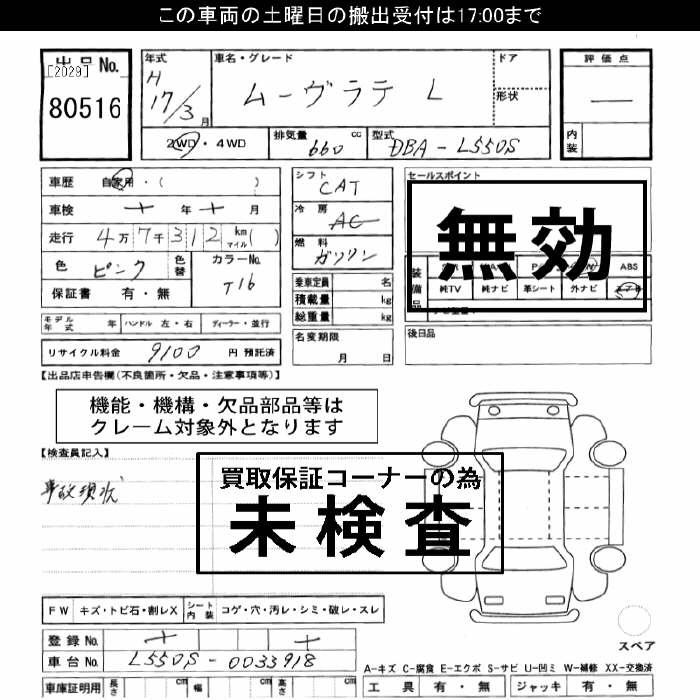 この車両の土曜日の搬出受付は17:00まで
出品No.
[2029]
80516
年式 H 17/3月
車名・グレード ムーヴラテ L
ドア
形状
評価点 —
内装
2WD・4WD
排気量 660 cc
型式 DBA-L550S
車歴 自家用・( )
車検 年 月
走行 4万7千312 km マイル( )
色 ピンク
色替
カラーNo. T16
保証書 有・無
シフト CAT
冷房 AC
燃料 ガソリン
乗車定員 名
積載量 kg
総重量 kg
名変期限 月 日
セールスポイント
無効
装備品
ABS
純TV 純ナビ 革シート 外ナビ
後日品
モデル年式 年 ハンドル 左・右 ディーラー・並行
リサイクル料金 9100 円 預託済
【出品店申告欄(不良箇所・欠品・注意事項等)】
機能・機構・欠品部品等は
クレーム対象外となります
【検査員記入】
事故現状
買取保証コーナーの為
未検査
FW キズ・トビ石・割レX シート内装 コゲ・穴・汚レ・シミ・破レ・スレ
登録No.
車台No. L550S-0033918
車庫証明用 長さ cm 幅 cm 高さ cm
スペア
A-キズ C-腐食 E-エクボ S-サビ U-凹ミ W-補修 XX-交換済
工具 有・無 ジャッキ 有・無